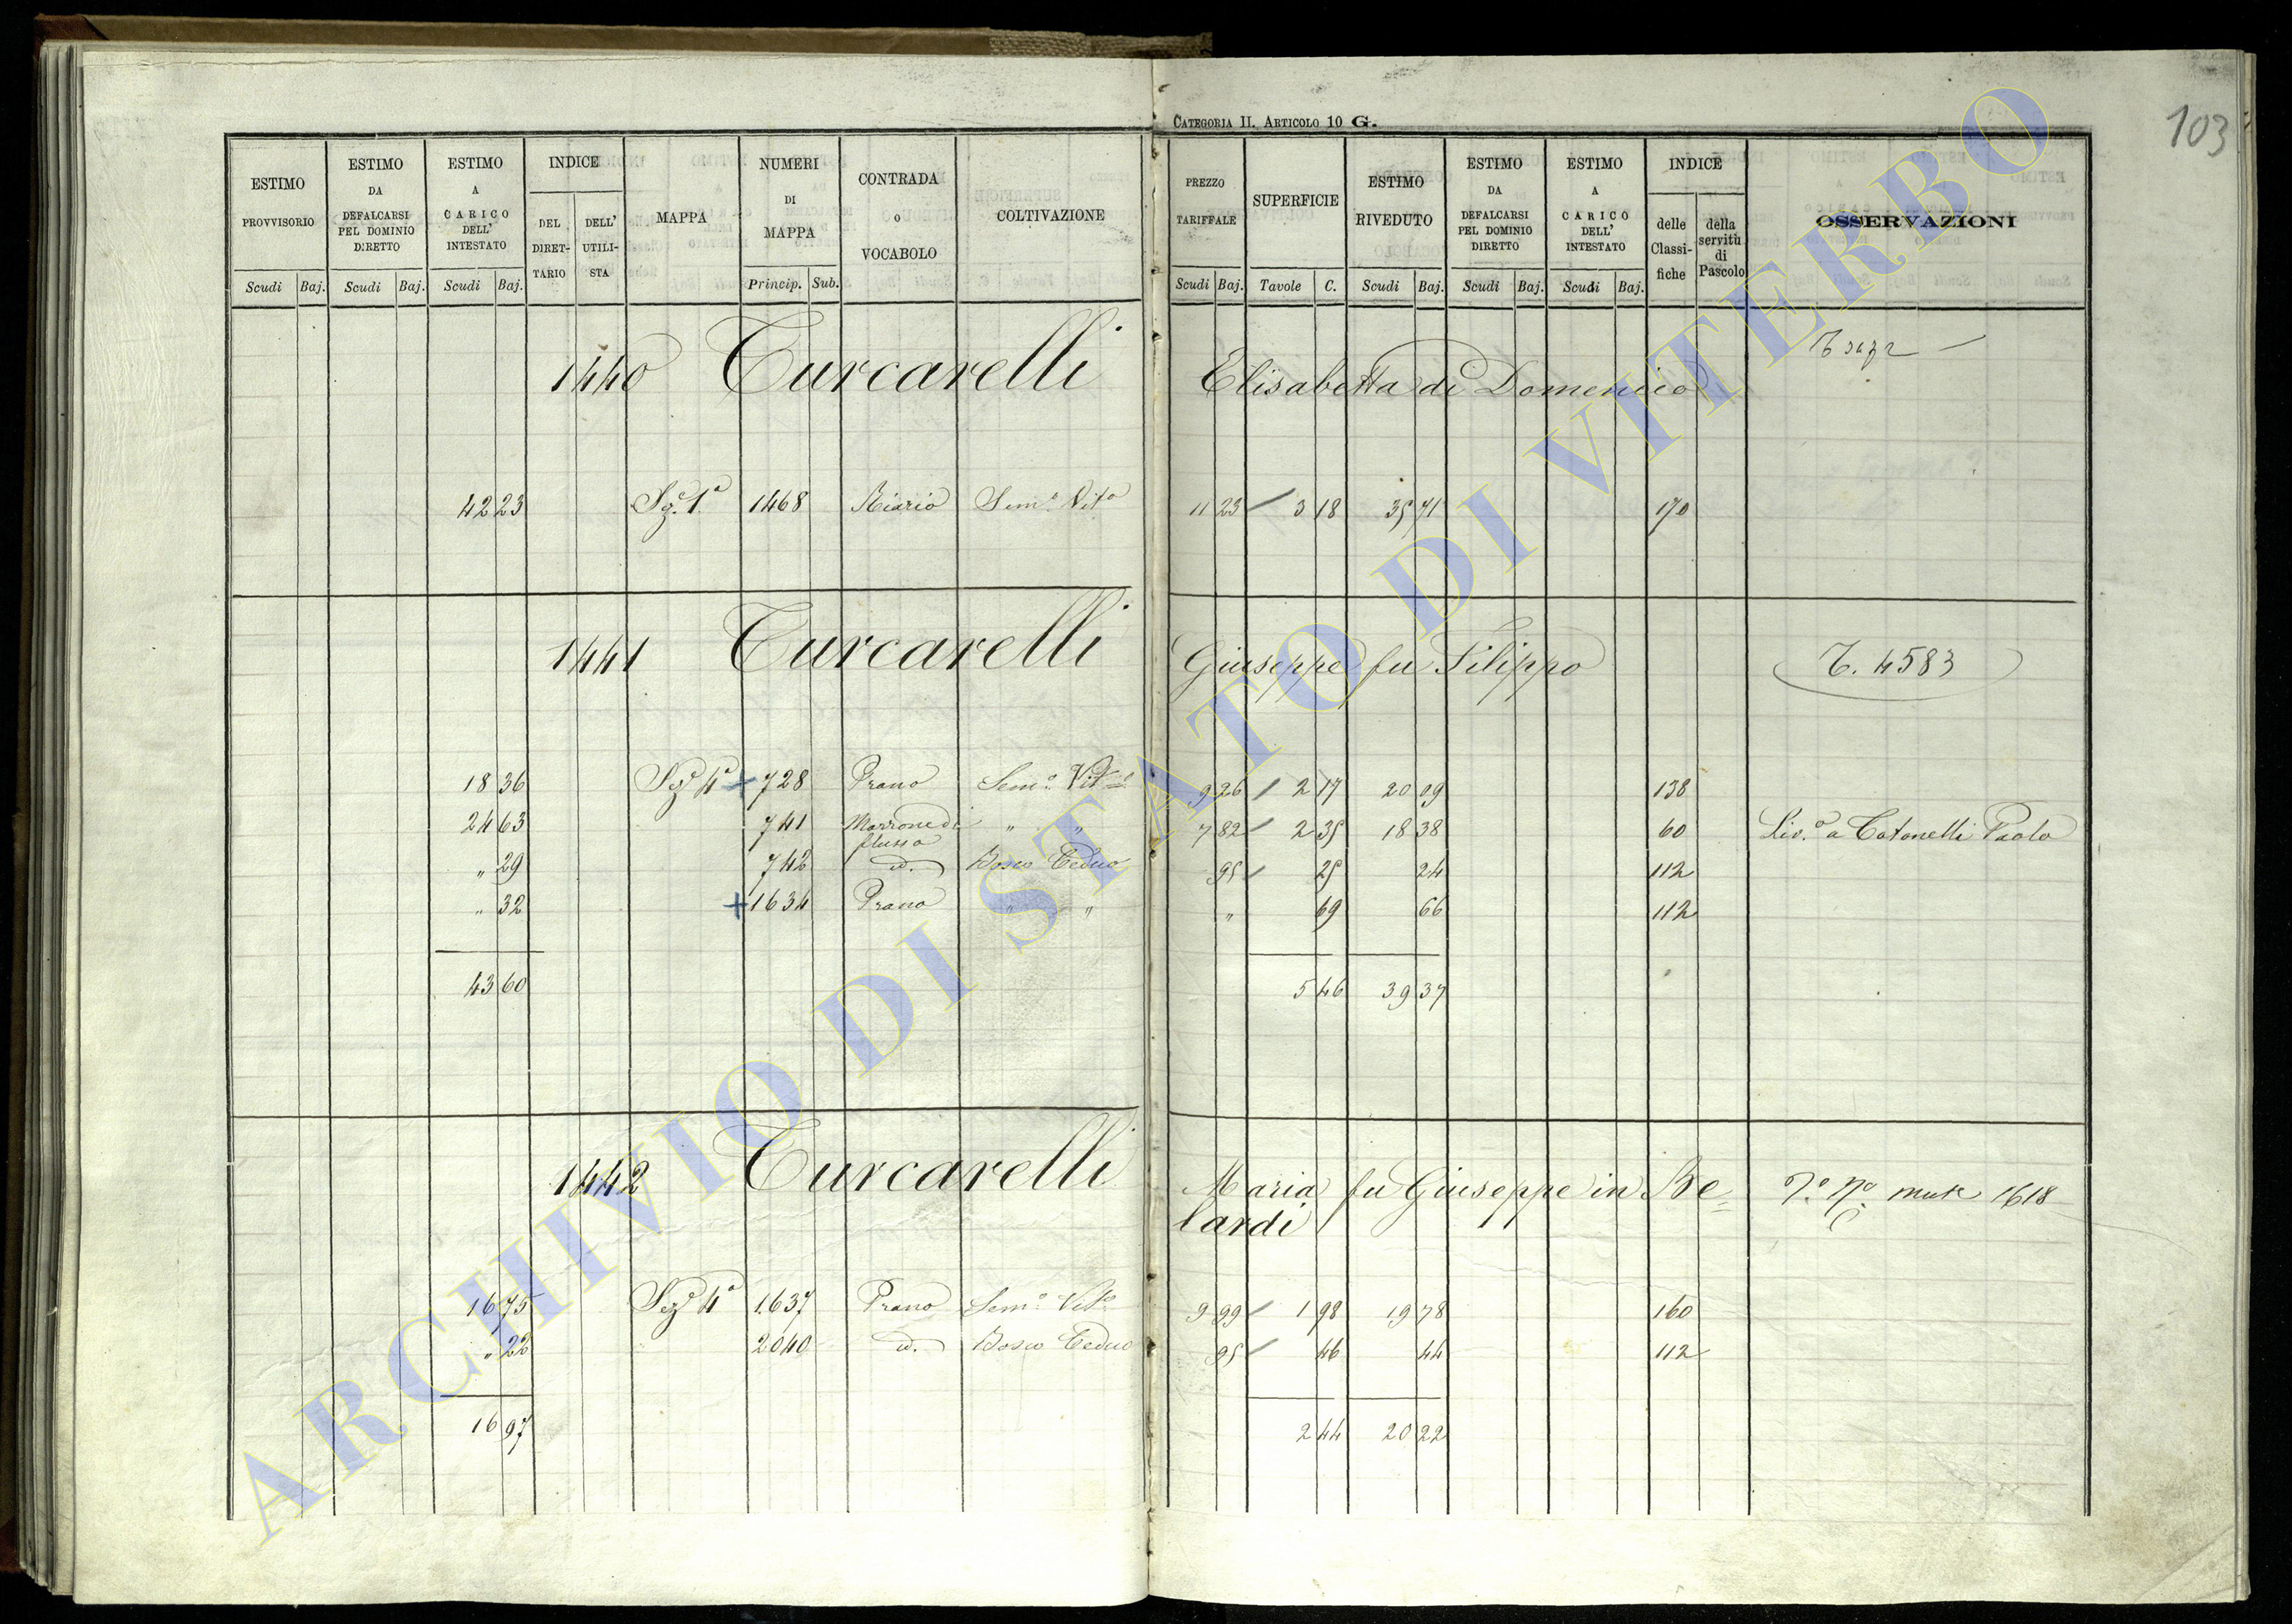 CATEGORIA II. ARTICOLO 10 G.
103
ESTIMO PROVVISORIO Scudi Baj.
ESTIMO DA DEFALCARSI PEL DOMINIO DIRETTO Scudi Baj.
ESTIMO A CARICO DELL' INTESTATO Scudi Baj.
INDICE DEL DIRET-TARIO DELL' UTILI-STA
MAPPA
NUMERI DI MAPPA Princip. Sub.
CONTRADA o VOCABOLO
COLTIVAZIONE
PREZZO TARIFFALE Scudi Baj.
SUPERFICIE Tavole C.
ESTIMO RIVEDUTO Scudi Baj.
ESTIMO DA DEFALCARSI PEL DOMINIO DIRETTO Scudi Baj.
ESTIMO A CARICO DELL' INTESTATO Scudi Baj.
INDICE delle Classi-fiche della servitù di Pascolo
OSSERVAZIONI
1440 Turcarelli Elisabetta di Domenico
42 23 Sez.ª 1ª 1468 Riario Sem.º Vit.º 11 23 3 18 35 71 170
1441 Turcarelli Giuseppe fu Filippo T. 4583
18 36 Sez.ª 4ª + 728 Prano Sem.º Vit.º 9 26 2 17 20 09 138
24 63 741 Marrone di " " 7 82 2 35 18 38 60 Liv.º a Cotonelli Paolo
flusso
" 29 742 id. Bosco Ceduo 95 25 24 112
" 32 + 1634 Prano " " " 69 66 112
43 60 5 46 39 37
1442 Turcarelli Maria fu Giuseppe in Be= 1618
lardi
16 75 Sez.ª 4ª 1637 Prano Sem.º Vit.º 9 99 1 98 19 78 160
" 22 2040 id. Bosco Ceduo 95 46 44 112
16 97 2 44 20 22
ARCHIVIO DI STATO DI VITERBO